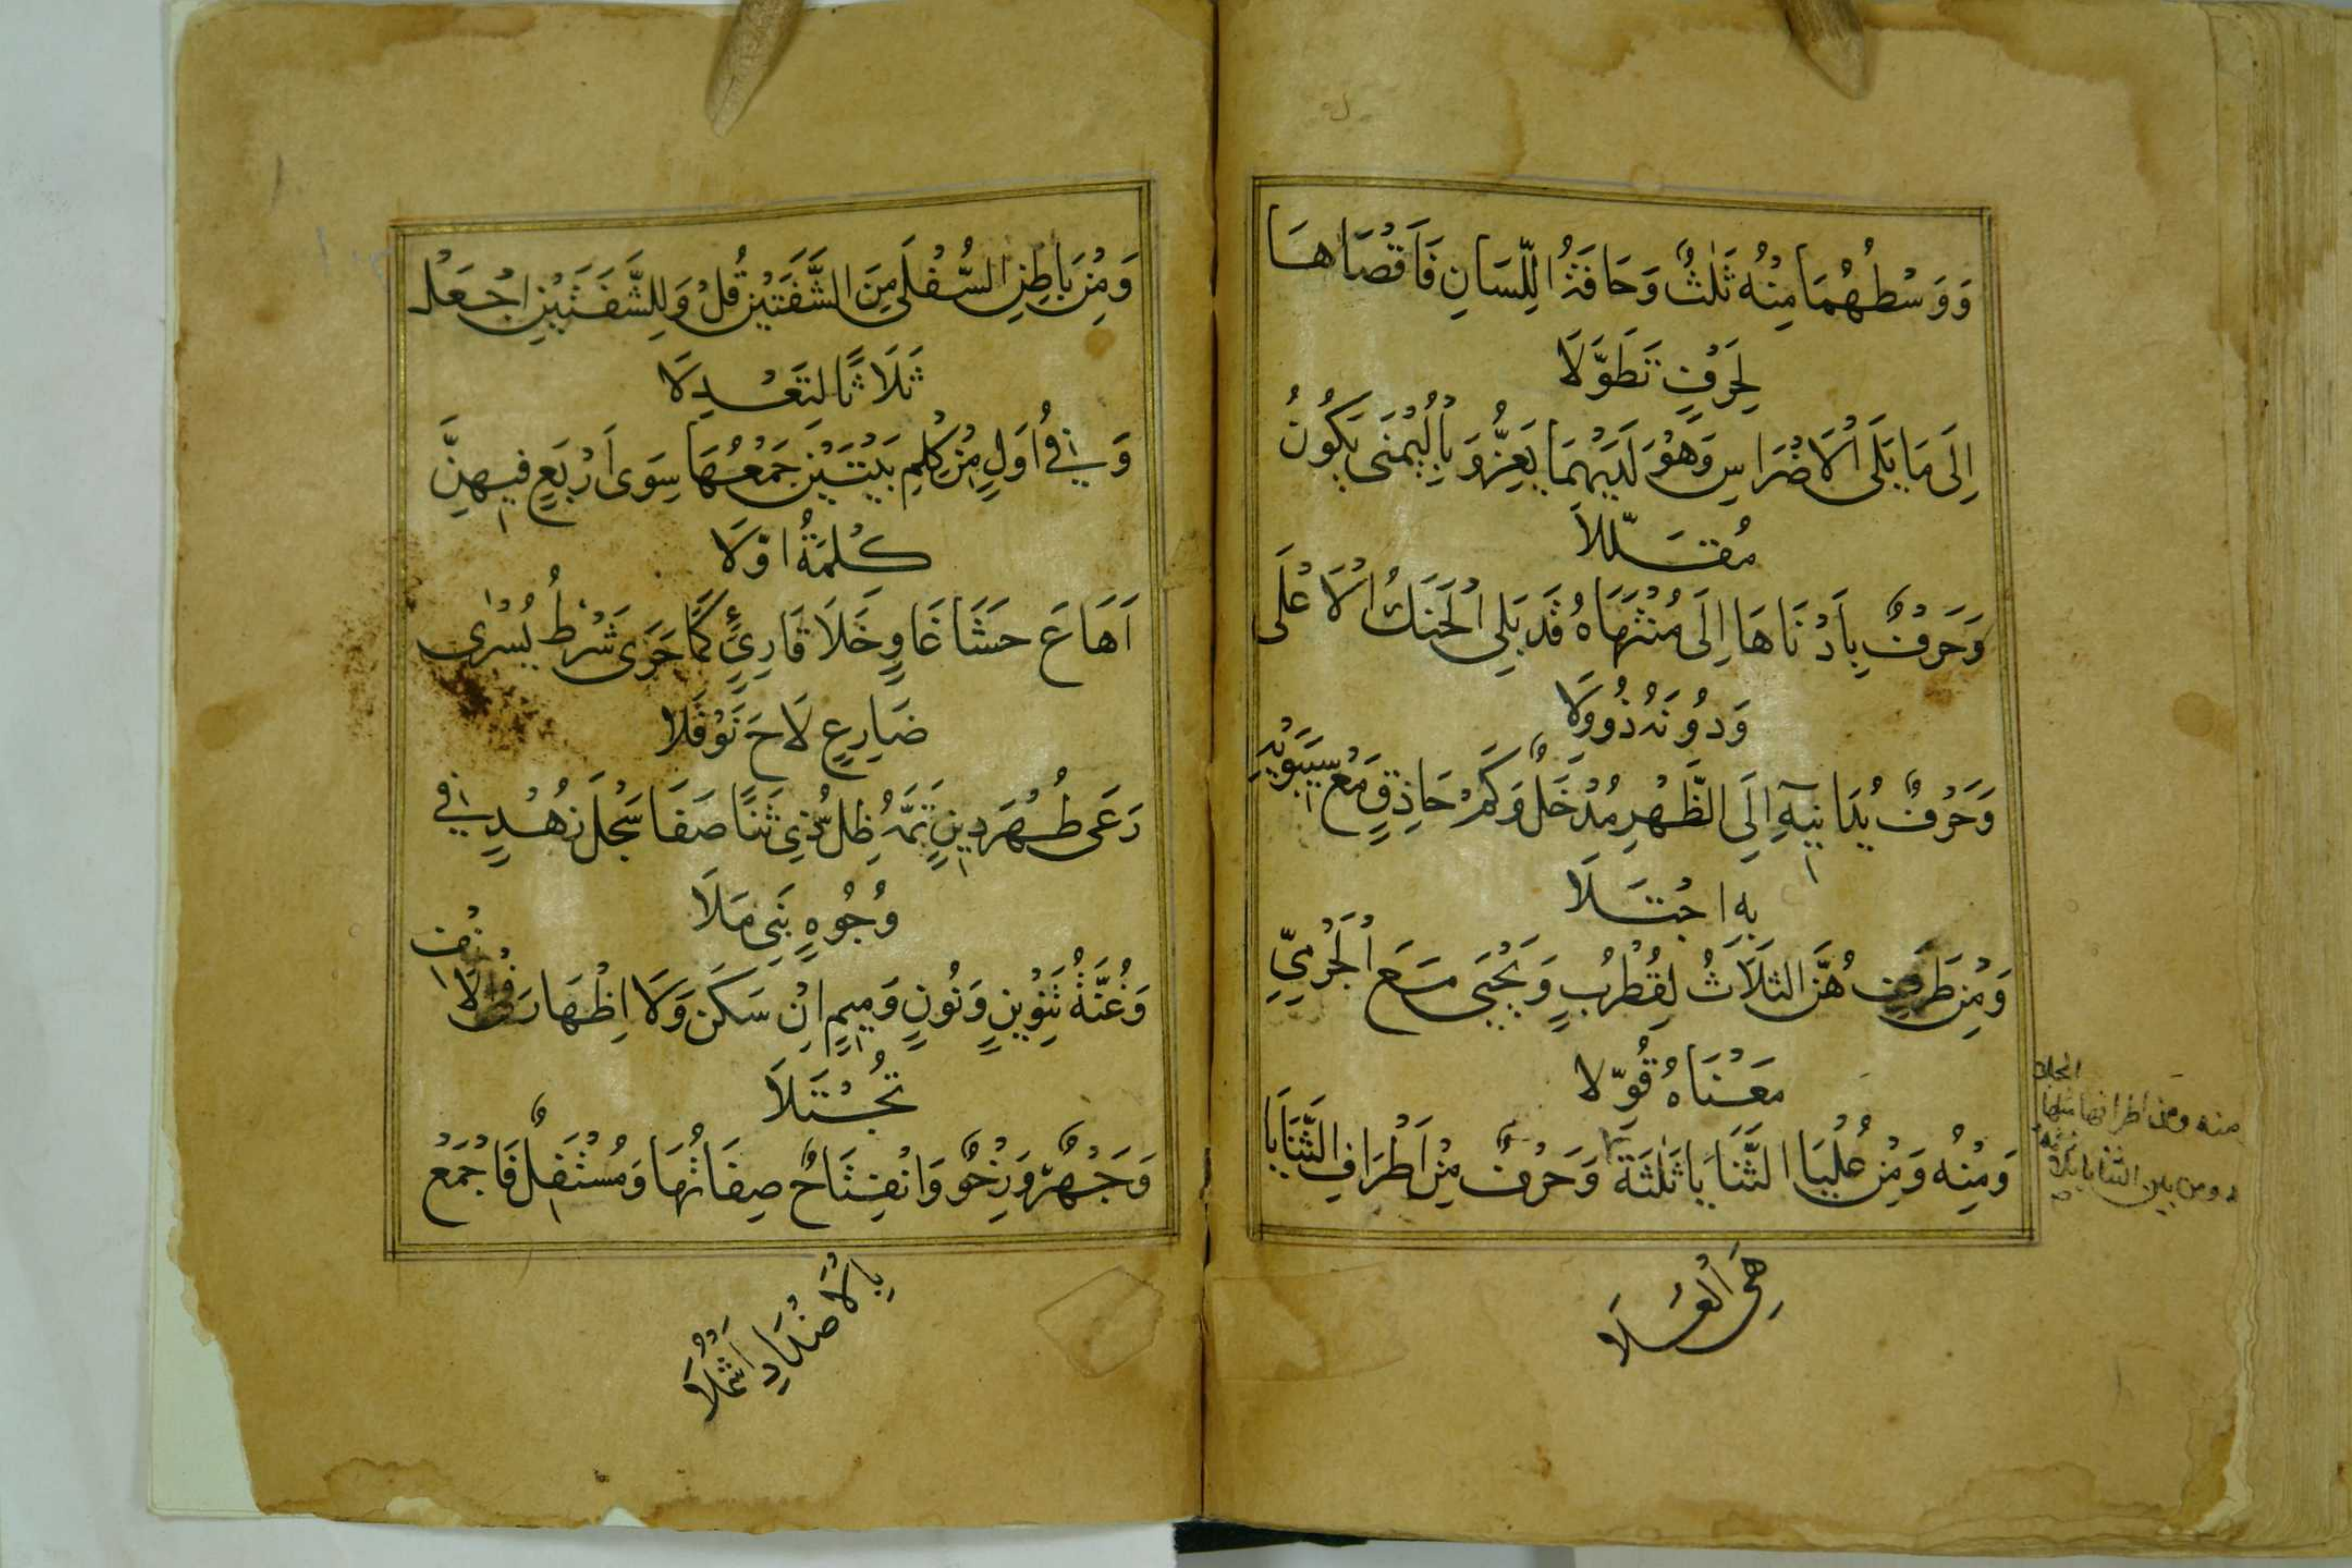 وَوَسْطُهُمَا مِنْهُ ثَلٰثٌ وَحَافَةُ اللِّسَانِ فَاَقْصَاهَا
لِحَرْفٍ تَطَوَّلَا
اِلَى مَا يَلَى الْاَضْرَاسِ وَهْوَ لَدَيْهِمَا يَعِزُّ وَبِالْيُمْنَى يَكُونُ
مُقَلَّلَا
وَحَرْفٌ بِاَدْنَاهَا اِلَى مُنْتَهَاهُ قَدْ يَلِى الْحَنَكَ الْاَعْلَى
وَدُونَهُ ذُووِلَا
وَحَرْفٌ يُدَانِيهِ اِلَى الظَّهْرِ مُدْخَلٌ وَكَمْ حَاذِقٍ مَعْ سِيبَوَيْهِ
بِهِ اجْتَلَا
وَمِنْ طَرَفٍ هُنَّ الثَلَاثُ لِقُطْرُبٍ وَيَحْيَى مَعَ الْجَرْمِيِّ
مَعْنَاهُ قُوِّلَا
وَمِنْهُ وَمِنْ عُلْيَا الثَّنَايَا ثَلٰثَةٌ وَحَرْفٌ مِنْ اَطْرَافِ الثَّنَايَا
هِيَ الْعُلَا
منه ومن اطرافها مثلها
ومن بين الثنايا ثلاثة
وَمِنْ بَاطِنِ السُّفْلَى مِنَ الشَّفَتَيْنِ قُلْ وَلِلشَّفَتَيْنِ اجْعَلْ
ثَلَاثًا لِتَعْدِلَا
وَفِي اُوَلٍ مِنْ كِلْمِ بَيْتَيْنِ جَمْعُهَا سِوَى اَرْبَعٍ فِيهِنَّ
كِلْمَةُ اوَّلَا
اَهَاعَ حَشَا غَاوٍ خَلَا قَارِئٍ كَمَا جَرَى شَرْطُ يُسْرٰى
ضَارِعٍ لَاحَ نَوْفَلَا
رَعَى طُهْرَ دِينٍ تَمَّهُ ظِلُّ ذِي ثَنًا صَفَا سَجْلُ زُهْدٍ فِي
وُجُوهِ بَنِى مَلَا
وَغُنَّةُ تَنْوِينٍ وَنُونٍ وَمِيمٍ اِنْ سَكَنَّ وَلَا اِظْهَارَ فِي الْاَنْفِ
تُجْتَلَا
وَجَهْرٌ وَرِخْوٌ وَانْفِتَاحٌ صِفَاتُهَا وَمُسْتَفِلٌ فَاجْمَعْ
بِالْاَضْدَادِ اَشْمُلَا